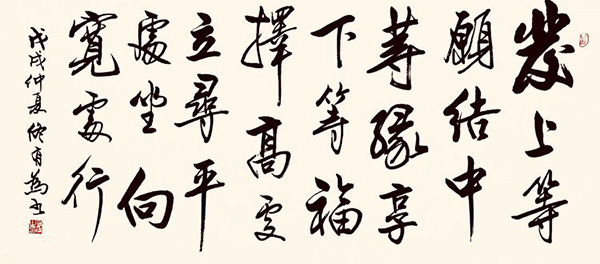 發上等
願结中
等緣享
下等福
擇高處
立尋平
處坐向
寬處行
戊戌仲夏修有為书